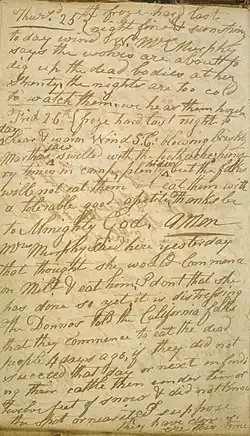 Thurs. 25th froze hard last
night fine & sunshiny
to day wind W. Mrs Murphy
says the wolves are about to
dig up the dead bodies at her
shanty, the nights are too cold
to watch them, we hear them howl
Frid 26th froze hard last night to
day clear & warm Wind S.E. blowing briskly
Marthas jaw swelled with the toothache hungry
times in camp, plenty hides but the folks
will not eat them we eat them with
a tolerable good apetite. Thanks be
to Almighty God. Amen
Mrs Murphy said here yesterday
that thought she would commence
on Milt & eat him. I dont that she
has done so yet, it is distressing
The Donnos told the California folks
that they commence to eat the dead
people 4 days ago, if they did not
succeed that day or next in finding
their cattle then under ten or
twelve feet of snow & did not know
the spot or near it, I suppose
they have done so
ere this time